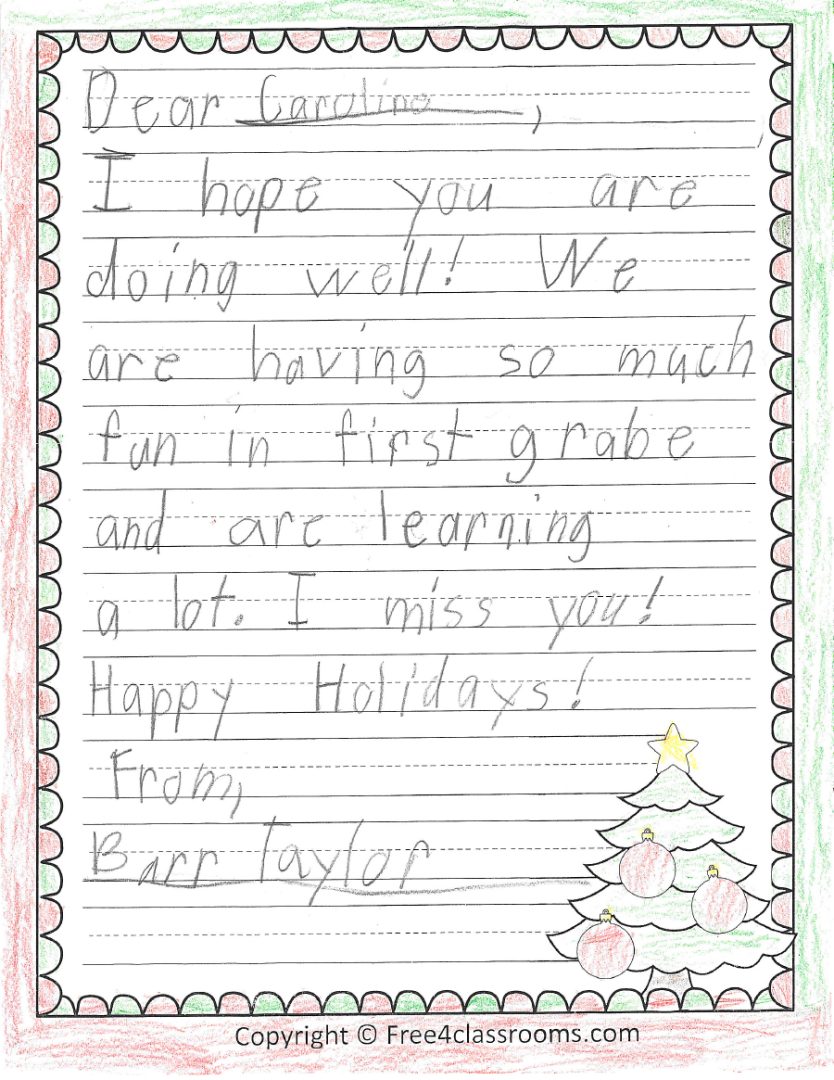 Dear Caroline,
I hope you are
doing well! We
are having so much
fun in first grabe
and are learning
a lot. I miss you!
Happy Holidays!
From,
Barr Taylor
Copyright © Free4classrooms.com